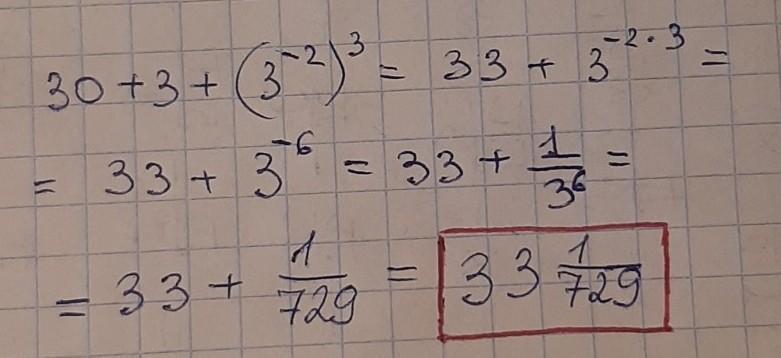 30 + 3 + (3⁻²)³ = 33 + 3⁻²·³ =
= 33 + 3⁻⁶ = 33 + 1/3⁶ =
= 33 + 1/729 = 33 1/729